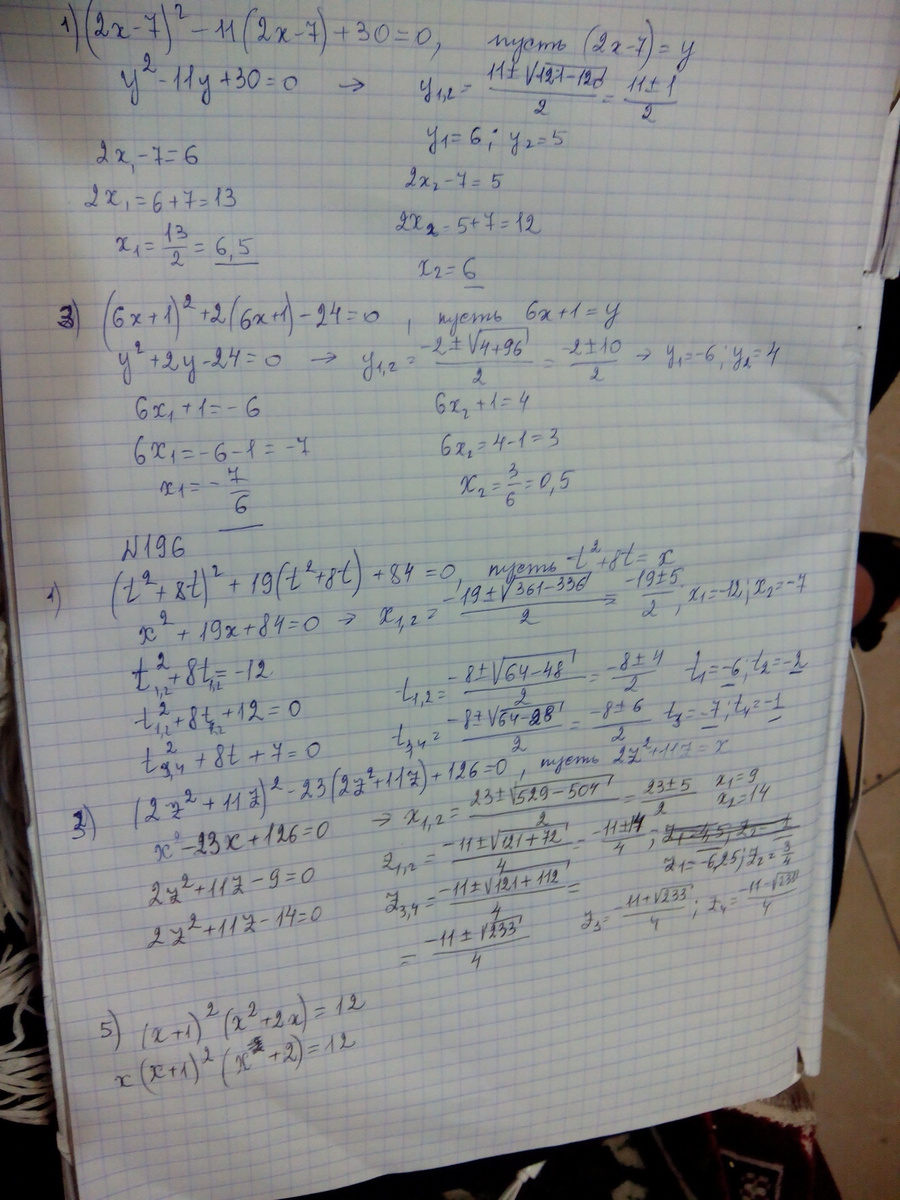 1) (2x-7)² - 11(2x-7) + 30 = 0, пусть (2x-7) = y
y² - 11y + 30 = 0 → y₁,₂ = (11 ± √(121-120))/2 = (11 ± 1)/2
y₁ = 6; y₂ = 5
2x₁ - 7 = 6 2x₂ - 7 = 5
2x₁ = 6 + 7 = 13 2x₂ - 5 + 7 = 12
x₁ = 13/2 = 6,5 x₂ = 6
3) (6x+1)² + 2(6x+1) - 24 = 0, пусть 6x+1 = y
y² + 2y - 24 = 0 → y₁,₂ = (-2 ± √(4+96))/2 = (-2 ± 10)/2 → y₁ = -6; y₂ = 4
6x₁ + 1 = -6 6x₂ + 1 = 4
6x₁ = -6 - 1 = -7 6x₂ = 4 - 1 = 3
x₁ = -7/6 x₂ = 3/6 = 0,5
N196
1) (t² + 8t)² + 19(t² + 8t) + 84 = 0, пусть t² + 8t = x
x² + 19x + 84 = 0 → x₁,₂ = (-19 ± √(361-336))/2 = (-19 ± 5)/2; x₁ = -12; x₂ = -7
t₁,₂² + 8t₁,₂ = -12
t₁,₂² + 8t₁,₂ + 12 = 0 t₁,₂ = (-8 ± √(64-48))/2 = (-8 ± 4)/2 t₁ = -6; t₂ = -2
t₃,₄² + 8t + 7 = 0 t₃,₄ = (-8 ± √(64-28))/2 = (-8 ± 6)/2 t₃ = -7; t₄ = -1
3) (2z² + 11z)² - 23(2z² + 11z) + 126 = 0, пусть 2z² + 11z = x
x² - 23x + 126 = 0 → x₁,₂ = (23 ± √(529-504))/2 = (23 ± 5)/2 x₁ = 9 x₂ = 14
2z² + 11z - 9 = 0 z₁,₂ = (-11 ± √(121+72))/4 = (-11 ± 14)/4; z₁ = -6,25; z₂ = 3/4
2z² + 11z - 14 = 0 z₃,₄ = (-11 ± √(121+112))/4 =
= (-11 ± √233)/4 z₃ = (-11 + √233)/4; z₄ = (-11 - √233)/4
5) (x+1)² (x² + 2x) = 12
x(x+1)² (x + 2) = 12